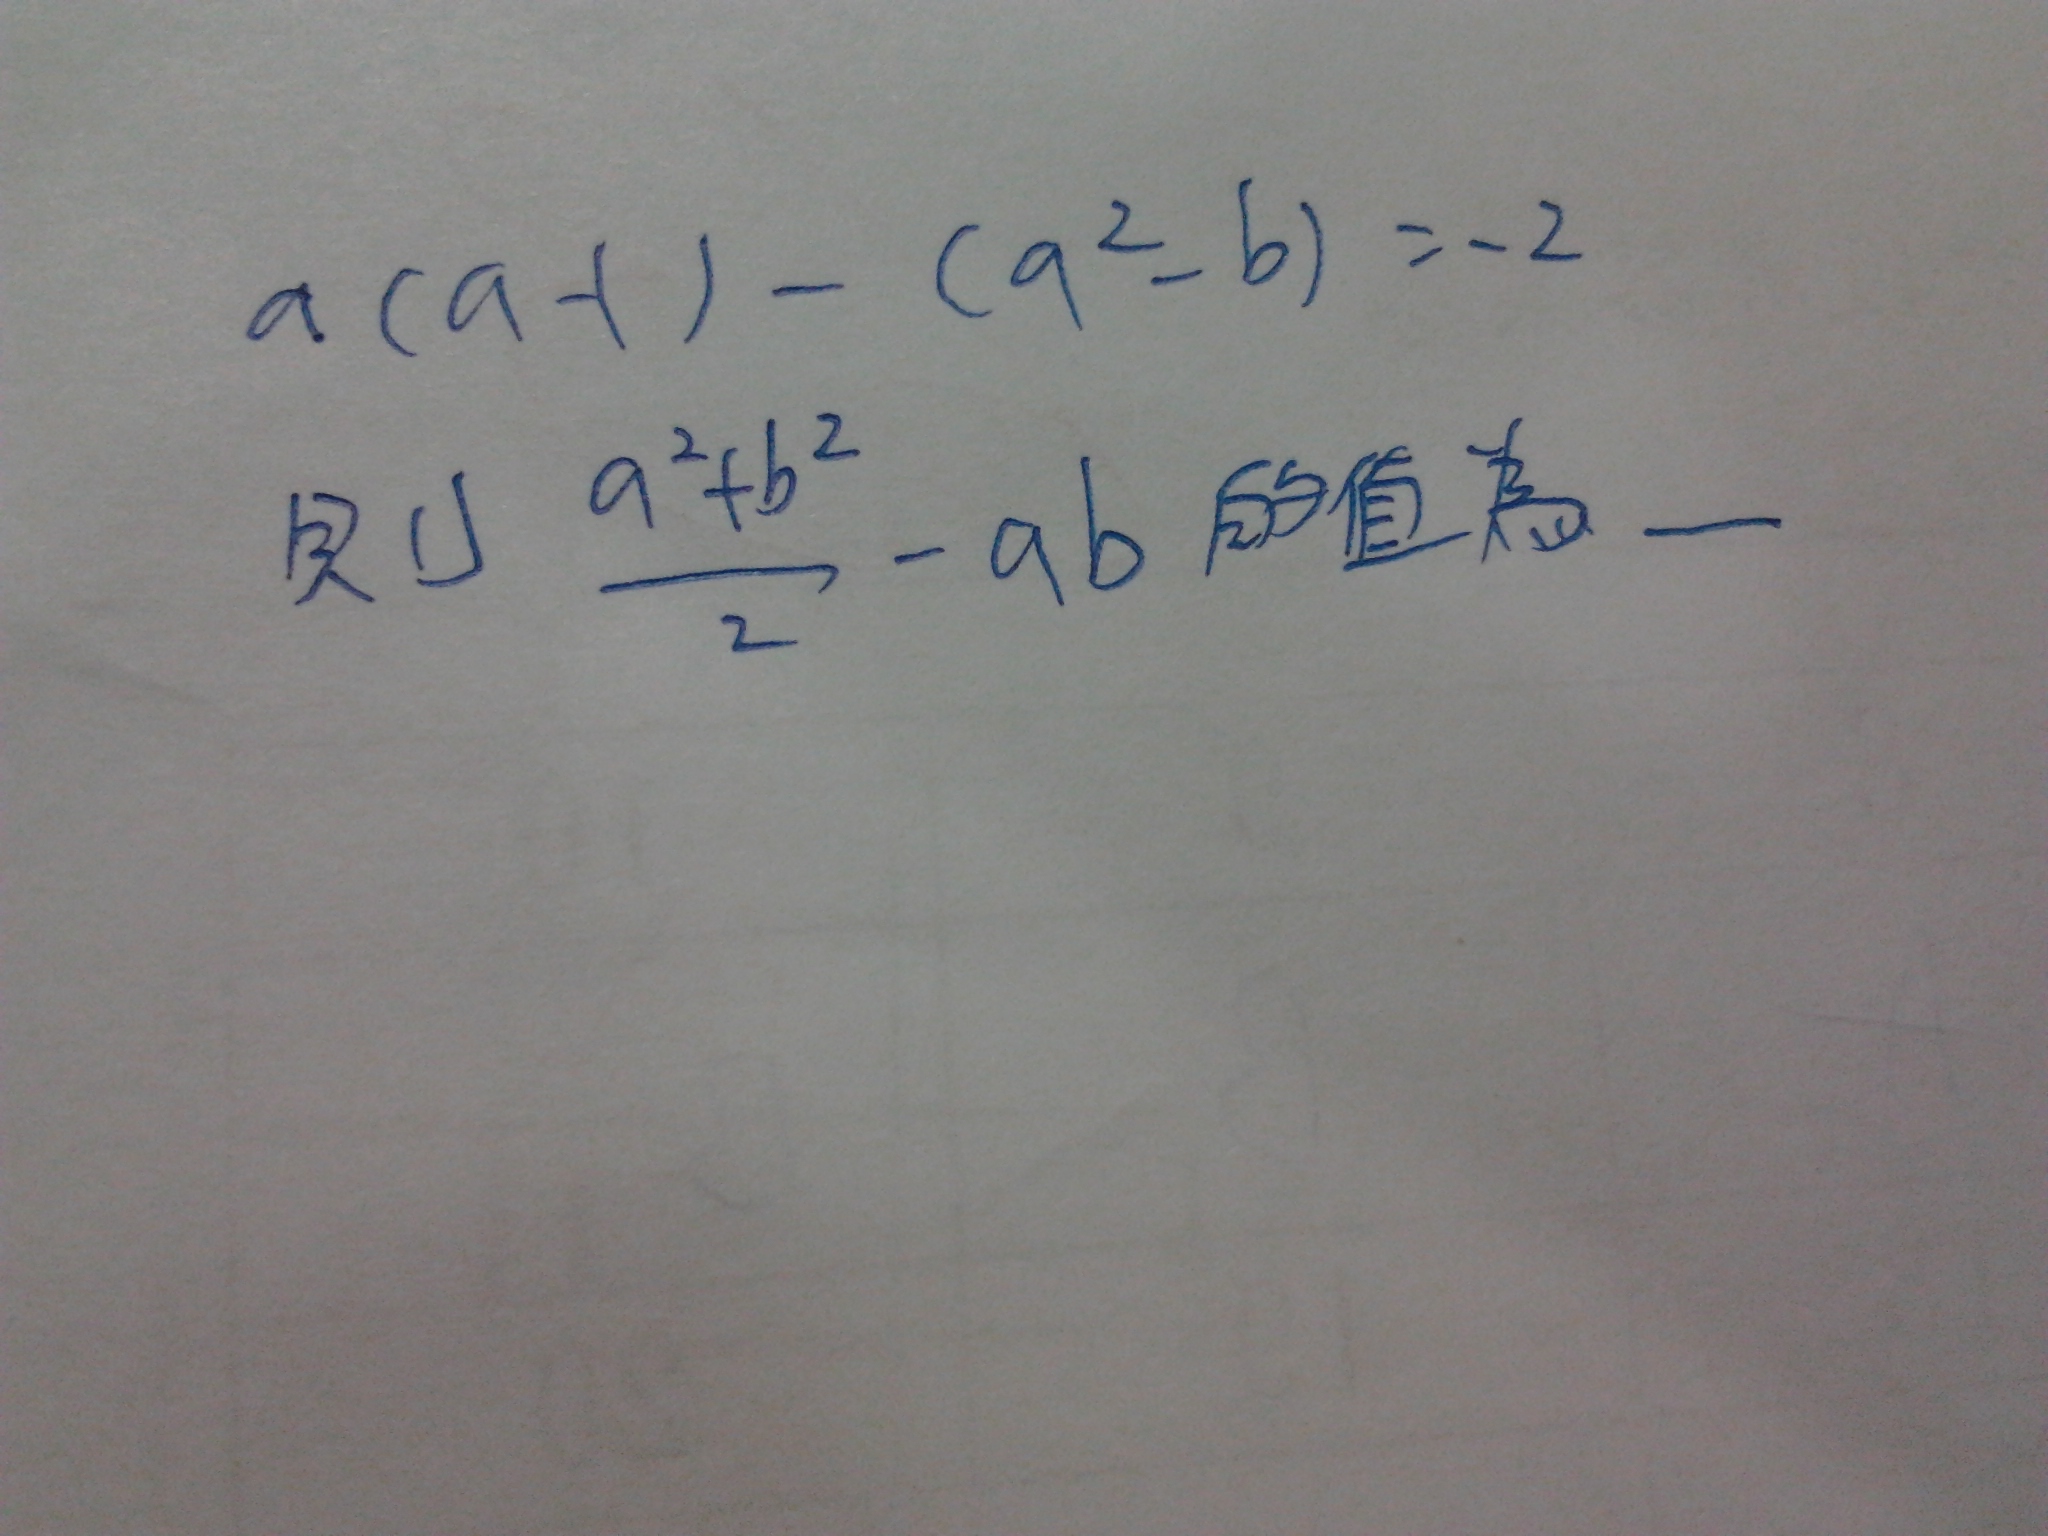 a(a-1)-(a²-b)=-2
则 \frac{a²+b²}{2} - ab 的值为 __